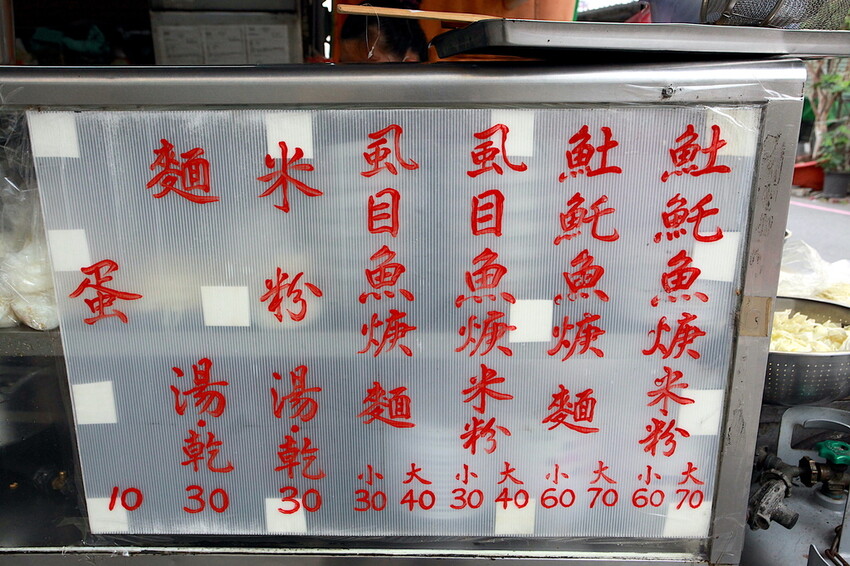 魠魚焿米粉 小60 大70
魠魚焿麵 小60 大70
虱目魚焿米粉 小30 大40
虱目魚焿麵 小30 大40
米粉 湯·乾 30
麵 湯·乾 30
蛋 10